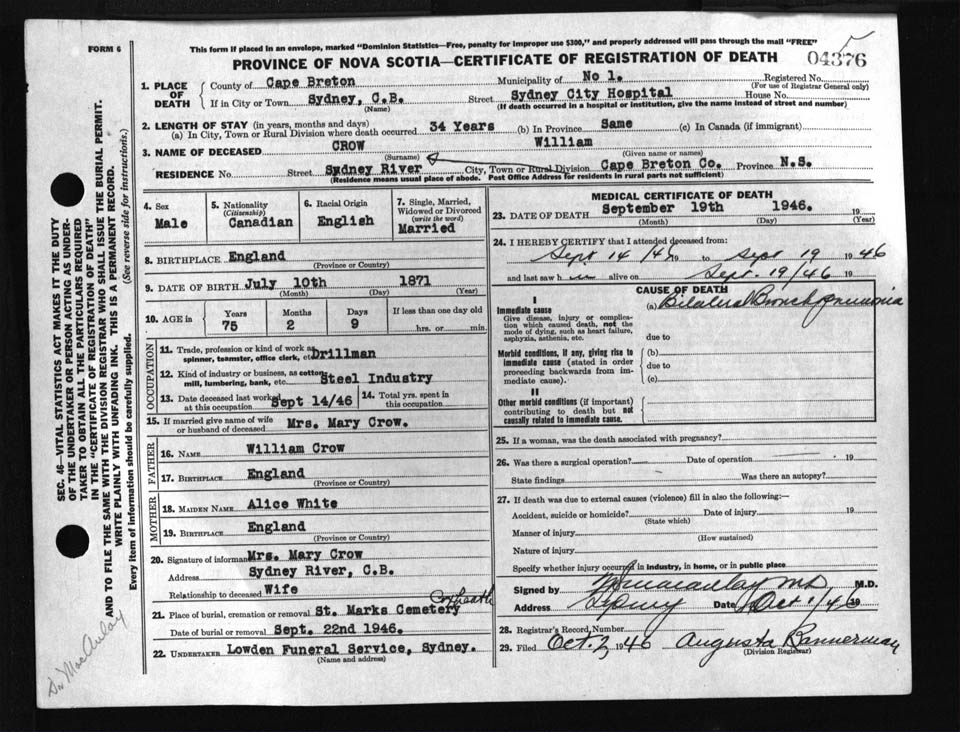 FORM 6
This form if placed in an envelope, marked "Dominion Statistics—Free, penalty for improper use $300," and properly addressed will pass through the mail "FREE"
PROVINCE OF NOVA SCOTIA—CERTIFICATE OF REGISTRATION OF DEATH
04376
1. PLACE OF DEATH
County of Cape Breton Municipality of No 1. Registered No.
(For use of Registrar General only)
If in City or Town Sydney, C.B. Street Sydney City Hospital House No.
(Name) (If death occurred in a hospital or institution, give the name instead of street and number)
2. LENGTH OF STAY (in years, months and days)
(a) In City, Town or Rural Division where death occurred 34 Years (b) In Province Same (c) In Canada (if immigrant)
3. NAME OF DECEASED CROW William
(Surname) (Given name or names)
RESIDENCE No. Street Sydney River City, Town or Rural Division Cape Breton Co. Province N.S.
(Residence means usual place of abode. Post Office Address for residents in rural parts not sufficient)
4. Sex
Male
5. Nationality
(Citizenship)
Canadian
6. Racial Origin
English
7. Single, Married, Widowed or Divorced
(write the word)
Married
8. BIRTHPLACE England
(Province or Country)
9. DATE OF BIRTH July 10th 1871
(Month) (Day) (Year)
10. AGE in Years Months Days If less than one day old
75 2 9 hrs. or min.
OCCUPATION
11. Trade, profession or kind of work as spinner, teamster, office clerk, etc. Drillman
12. Kind of industry or business, as cotton mill, lumbering, bank, etc. Steel Industry
13. Date deceased last worked at this occupation Sept 14/46 14. Total yrs. spent in this occupation
15. If married give name of wife or husband of deceased Mrs. Mary Crow.
FATHER
16. NAME William Crow
17. BIRTHPLACE England
(Province or Country)
MOTHER
18. MAIDEN NAME Alice White
19. BIRTHPLACE England
(Province or Country)
20. Signature of informant Mrs. Mary Crow
Address Sydney River, C.B.
Relationship to deceased Wife
21. Place of burial, cremation or removal St. Marks Cemetery Coxheath
Date of burial or removal Sept. 22nd 1946.
22. UNDERTAKER Lowden Funeral Service, Sydney.
(Name and address)
MEDICAL CERTIFICATE OF DEATH
23. DATE OF DEATH September 19th 1946. 19
(Month) (Day) (Year)
24. I HEREBY CERTIFY that I attended deceased from:
Sept 14/46 19 to Sept 19 1946
and last saw h im alive on Sept. 19/46 19
CAUSE OF DEATH
I
Immediate cause
Give disease, injury or complication which caused death, not the mode of dying, such as heart failure, asphyxia, asthenia, etc.
(a) Bilateral Bronchopneumonia
due to
Morbid conditions, if any, giving rise to immediate cause (stated in order proceeding backwards from immediate cause).
(b)
due to
(c)
II
Other morbid conditions (if important) contributing to death but not causally related to immediate cause.
25. If a woman, was the death associated with pregnancy?
26. Was there a surgical operation? Date of operation 19
State findings Was there an autopsy?
27. If death was due to external causes (violence) fill in also the following:—
Accident, suicide or homicide? Date of injury 19
(State which)
Manner of injury
(How sustained)
Nature of injury
Specify whether injury occurred in industry, in home, or in public place
Signed by Macaulay MD M.D.
Address Sydney Date Oct 1/46 19
28. Registrar's Record Number
29. Filed Oct. 2, 1946 Augusta Bannerman
(Division Registrar)
SEC. 46—VITAL STATISTICS ACT MAKES IT THE DUTY OF THE UNDERTAKER OR PERSON ACTING AS UNDERTAKER TO OBTAIN ALL THE PARTICULARS REQUIRED IN THE "CERTIFICATE OF REGISTRATION OF DEATH" AND TO FILE THE SAME WITH THE DIVISION REGISTRAR WHO SHALL ISSUE THE BURIAL PERMIT.
WRITE PLAINLY WITH UNFADING INK. THIS IS A PERMANENT RECORD.
Every item of information should be carefully supplied. (See reverse side for instructions.)
Dr. MacAulay